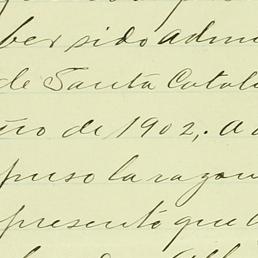 ber sido adm
de Santa Catal
ño de 1902,. a
puso la razon
presentó que